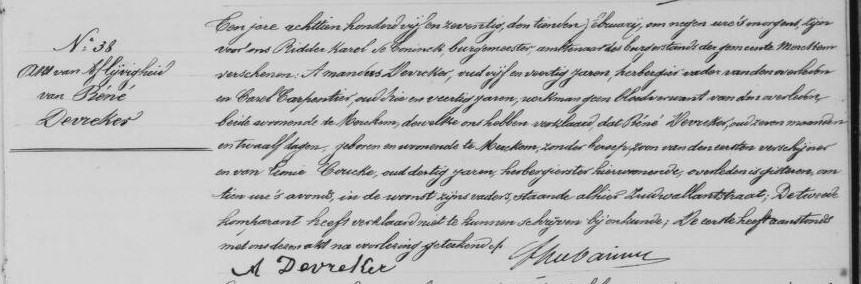 N.º 38
Akte van Aflijvigheid
van Réné
Devreker
Een jare achttien honderd vijf en zeventig, den tienden Februarij, om negen ure 's morgens, zijn
voor ons Ridder Karel de Coninck, burgemeester, ambtenaar des burgerstands der gemeente Merckem
verschenen: Amandus Devreker, oud vijf en veertig jaren, herbergier vader van den overleden
en Carel Carpentier, oud drie en veertig jaren, werkman geen bloedverwant van den overleden,
beide wonende te Merckem, dewelke ons hebben verklaard, dat Réné Devreker, oud zeven maanden
en twaalf dagen, geboren en wonende te Merckem, zonder beroep, zoon van den eersten verschijner
en van Coucke, oud dertig jaren, herbergierster hier wonende, overleden is gisteren, om
tien ure 's avonds, in de woonst zijns vaders, staande alhier Zuidwallantstraat; De tweede
komparant heeft verklaard niet te kunnen schrijven bij onkunde; De eerste heeft aanstonds
met ons dezen akt na voorlezing geteekend
A Devreker